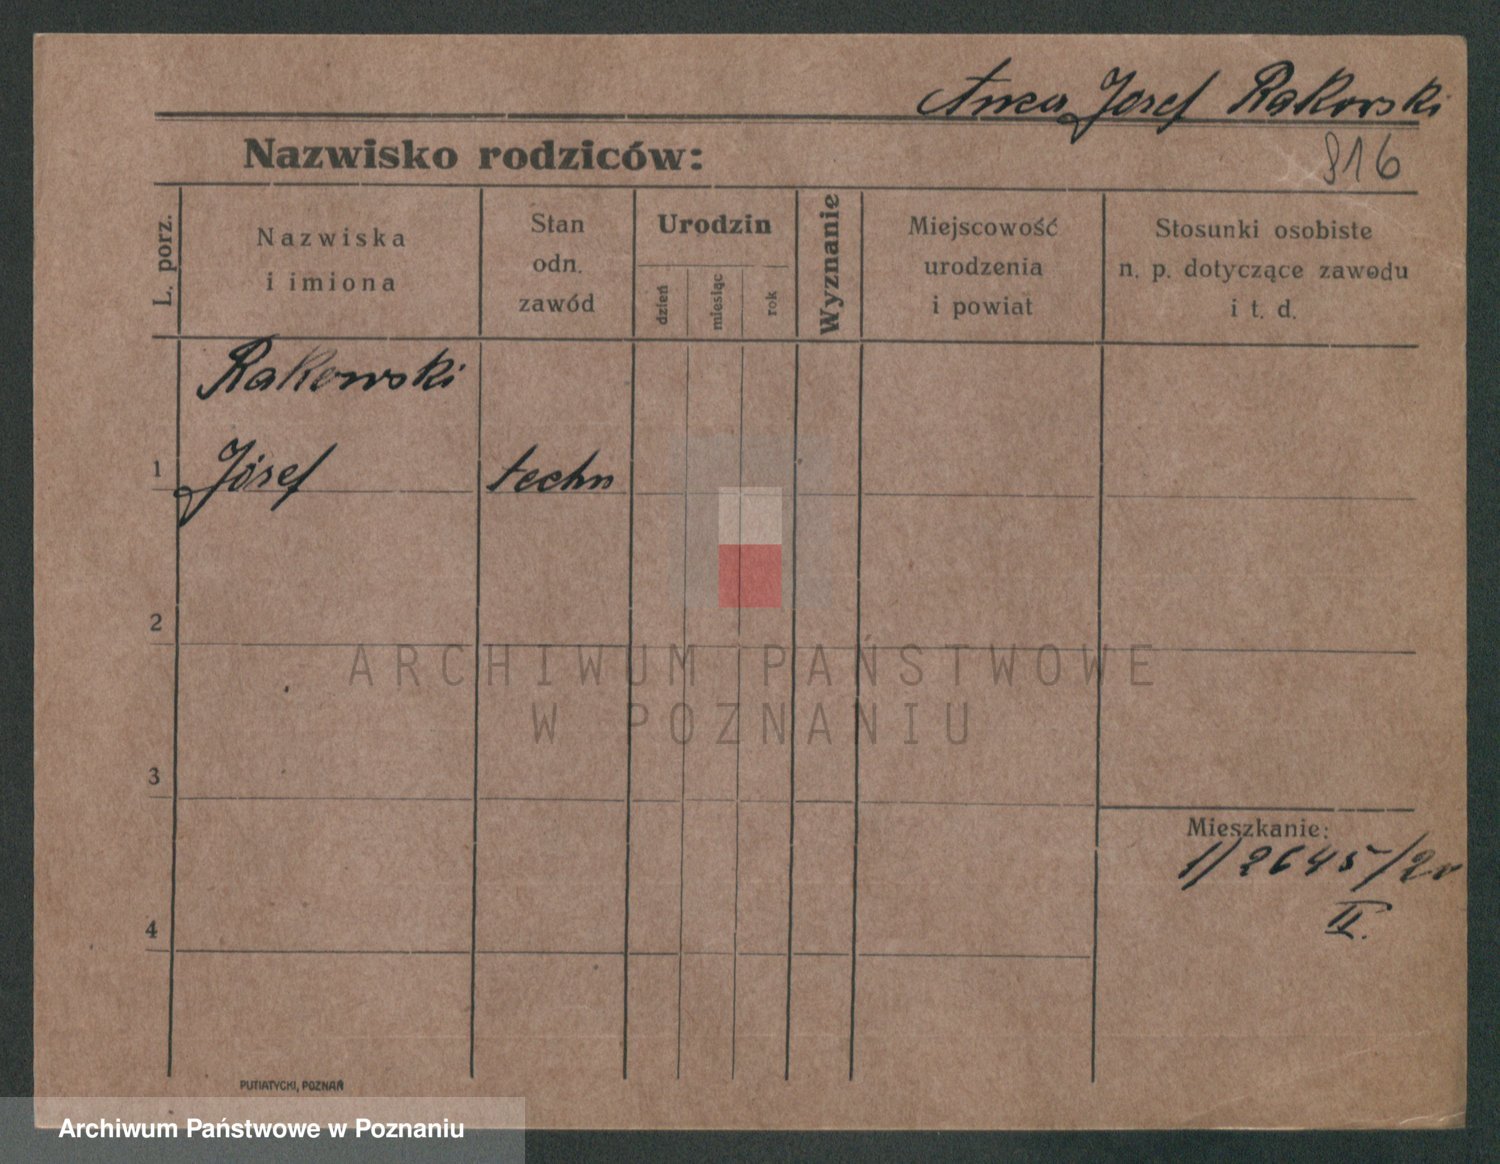 Józef Rakowski
816
Nazwisko rodziców:
L. porz.
Nazwiska
i imiona
Stan
odn.
zawód
Urodzin
dzień
miesiąc
rok
Wyznanie
Miejscowość
urodzenia
i powiat
Stosunki osobiste
n. p. dotyczące zawodu
i t. d.
Rakowski
1 Józef techn
2
3
4
ARCHIWUM PAŃSTWOWE
W POZNANIU
Mieszkanie:
II.
PUTIATYCKI, POZNAŃ
Archiwum Państwowe w Poznaniu